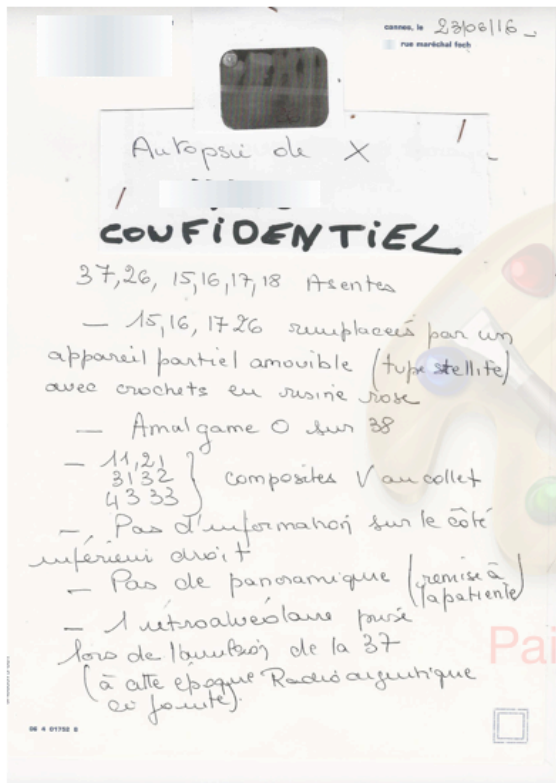 cannes, le 23/06/16
rue maréchal foch
Autopsie de X
CONFIDENTIEL
37,26, 15,16,17,18 Absentes
— 15,16, 17 26 remplacées par un
appareil partiel amovible (type stellite)
avec crochets en résine rose
— Amalgame O sur 38
— 11,21
31 32
43 33 } composites V au collet
— Pas d'information sur le côté
inférieur droit
— Pas de panoramique (remise à
la patiente)
— 1 rétroalvéolaire prise
lors de l'avulsion de la 37
(à cette époque Radio argentique
ci jointe).
Pai
06 4 01752 0